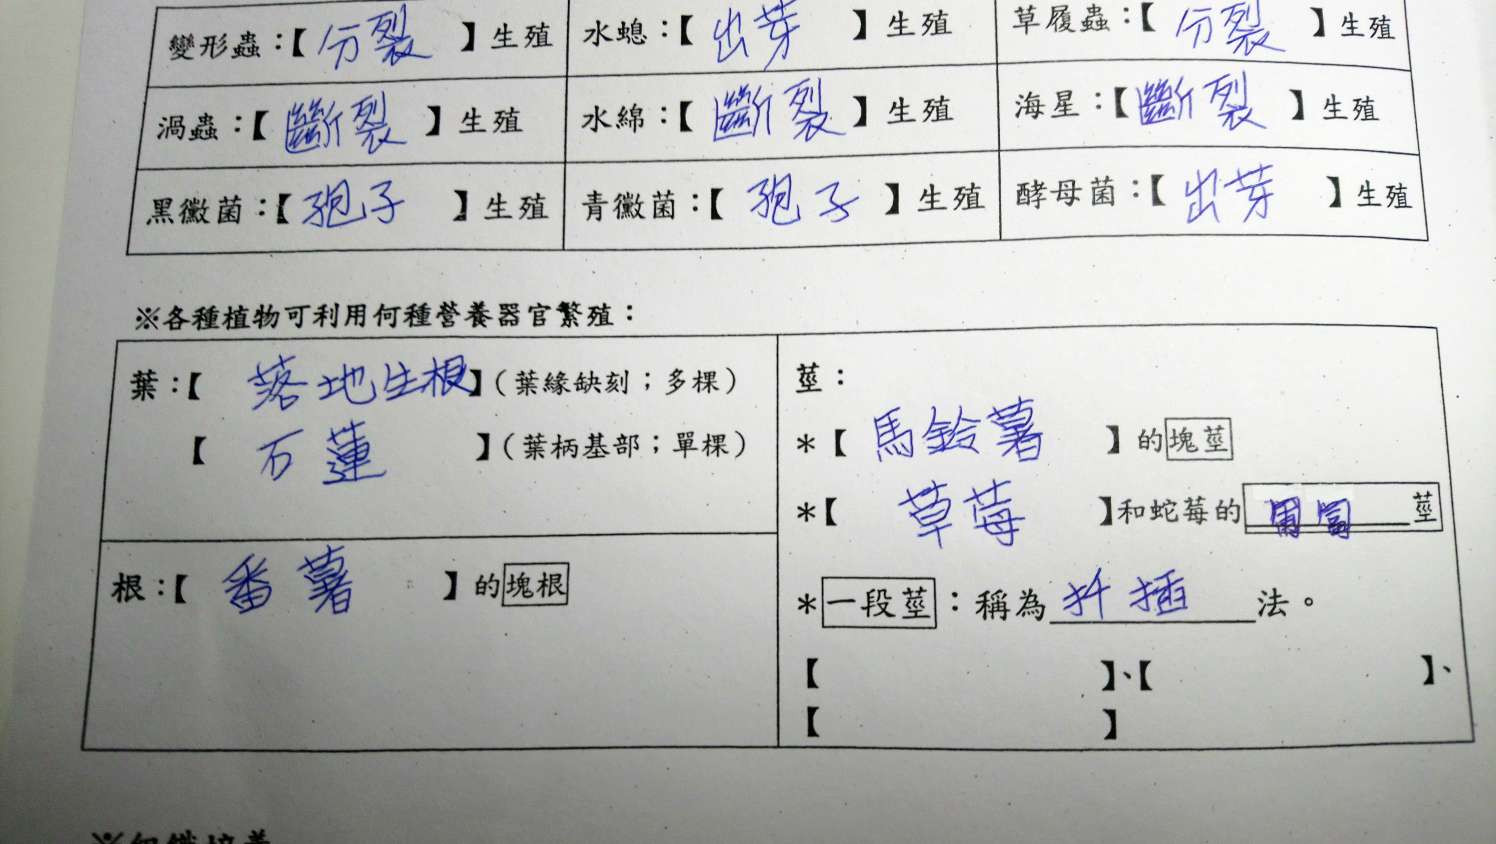 變形蟲：【分裂】生殖 水螅：【出芽】生殖 草履蟲：【分裂】生殖
渦蟲：【斷裂】生殖 水綿：【斷裂】生殖 海星：【斷裂】生殖
黑黴菌：【孢子】生殖 青黴菌：【孢子】生殖 酵母菌：【出芽】生殖
※各種植物可利用何種營養器官繁殖：
葉：【落地生根】（葉緣缺刻；多棵）
【石蓮】（葉柄基部；單棵）
根：【番薯】的塊根
莖：
＊【馬鈴薯】的塊莖
＊【草莓】和蛇莓的 莖
＊一段莖：稱為扦插法。
【 】、【 】、
【 】
※組織培養